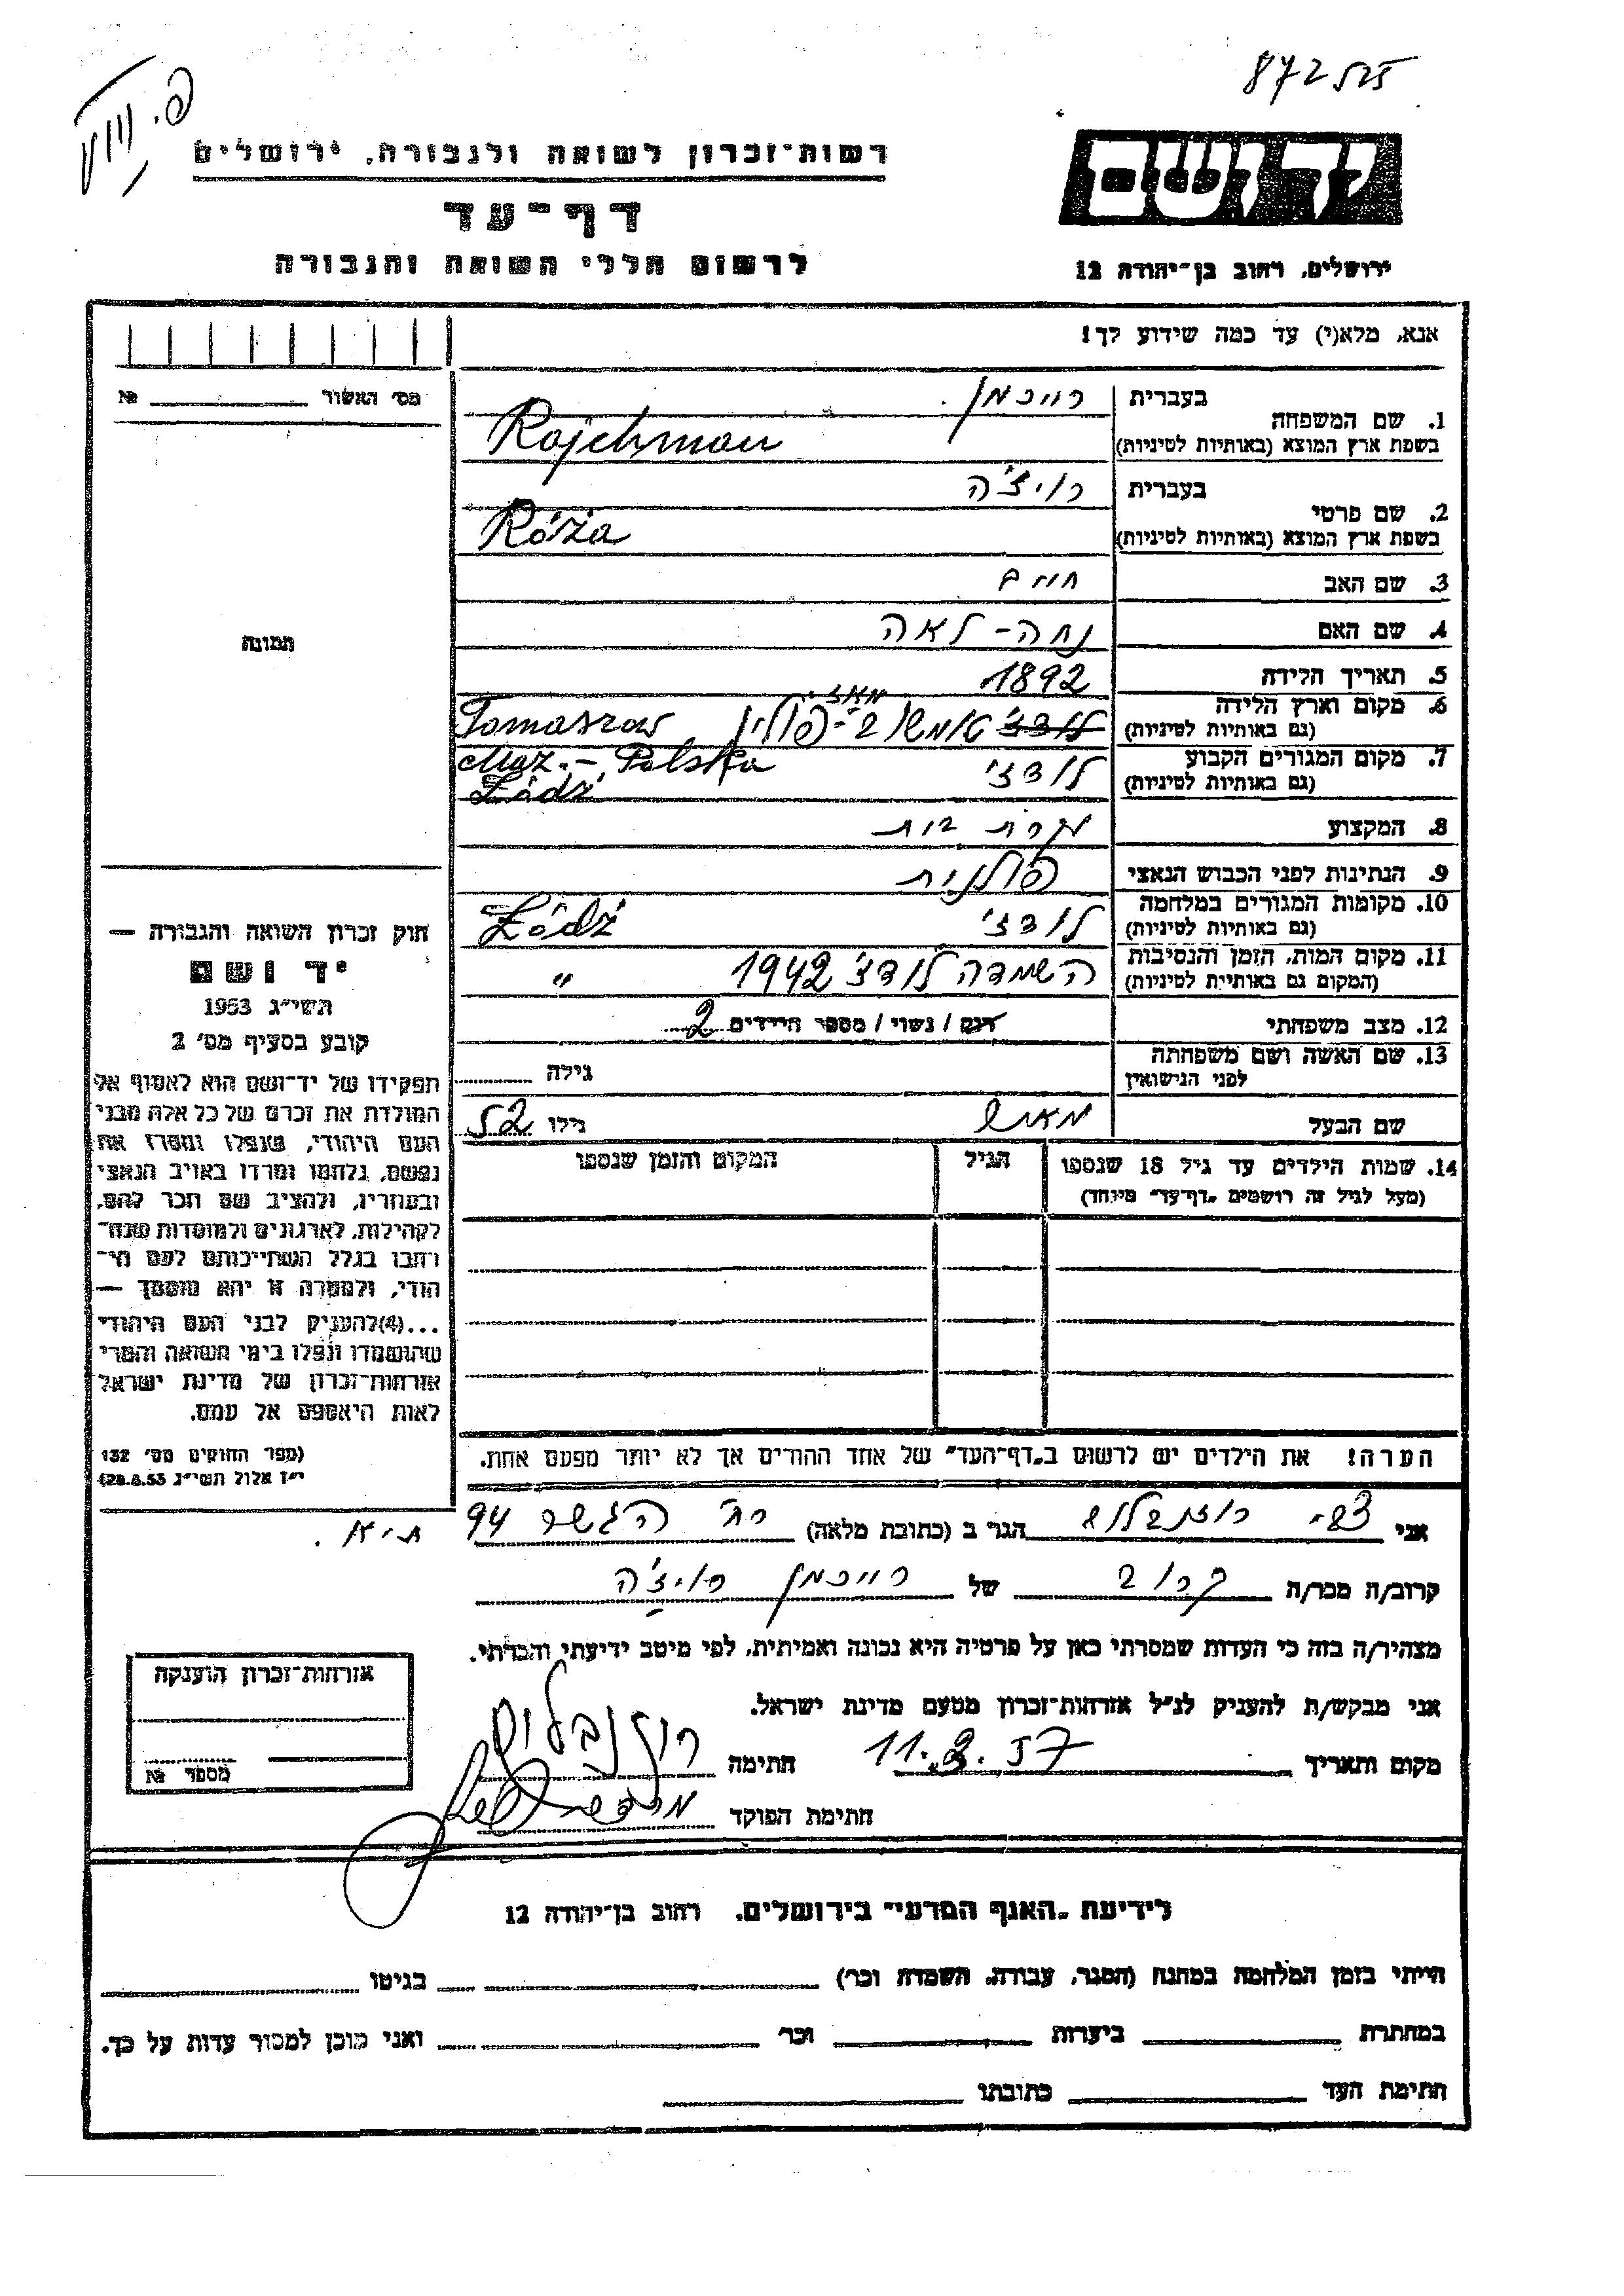 872525
פ. וויט
יד ושם
רשות־זכרון לשואה ולגבורה, ירושלים
דף־עד
לרשום חללי השואה והגבורה
ירושלים, רחוב בן־יהודה 12
אנא, מלא(י) עד כמה שידוע לך!
מס׳ האשור №
1. שם המשפחה
בעברית רייכמן.
בשפת ארץ המוצא (באותיות לטיניות) Rajchman
2. שם פרטי
בעברית רויז'ה
בשפת ארץ המוצא (באותיות לטיניות) Róża
3. שם האב חיים
4. שם האם נחה - לאה
תמונה
5. תאריך הלידה 1892
6. מקום וארץ הלידה לודז' טומשוב מאז' - פולין Tomaszow
(גם באותיות לטיניות) Maz. - Polska
7. מקום המגורים הקבוע לודז'
(גם באותיות לטיניות) Łódź
8. המקצוע עקרת בית
9. הנתינות לפני הכבוש הנאצי פולנית
10. מקומות המגורים במלחמה לודז' Łódź
(גם באותיות לטיניות)
11. מקום המות, הזמן והנסיבות השמדה לודז' 1942 "
(המקום גם באותיות לטיניות)
12. מצב משפחתי רווק / נשוי / מספר הילדים 2
13. שם האשה ושם משפחתה
לפני הנישואין גילה
שם הבעל גילו 52
14. שמות הילדים עד גיל 18 שנספו הגיל המקום והזמן שנספו
(מעל לגיל זה רושמים „דף־עד״ מיוחד)
חוק זכרון השואה והגבורה —
יד ושם
תשי״ג 1953
קובע בסעיף מס׳ 2
תפקידו של יד־ושם הוא לאסוף אל
המולדת את זכרם של כל אלה מבני
העם היהודי, שנפלו ומסרו את
נפשם, נלחמו ומרדו באויב הנאצי
ובעוזריו, ולהציב שם וזכר להם,
לקהילות, לארגונים ולמוסדות שנח־
רבו בגלל השתייכותם לעם הי־
הודי, ולמטרה זו יהא מוסמך —
...(4) להעניק לבני העם היהודי
שהושמדו ונפלו בימי השואה והמרי
אזרחות־זכרון של מדינת ישראל
לאות היאספם אל עמם.
(ספר החוקים מס׳ 132
י״ז אלול תשי״ג 28.8.53)
הערה! את הילדים יש לרשום ב„דף־העד״ של אחד ההורים אך לא יותר מפעם אחת.
אני צבי רוזנבלום הגר ב (כתובת מלאה) רח' הגשר 94
ת"א.
קרוב/ה מכר/ה קרוב של רייכמן רויז'ה
מצהיר/ה בזה כי העדות שמסרתי כאן על פרטיה היא נכונה ואמיתית, לפי מיטב ידיעתי והכרתי.
אני מבקש/ת להעניק לנ״ל אזרחות־זכרון מטעם מדינת ישראל.
מקום ותאריך 11.3.57 חתימה רוזנבלום
חתימת הפוקד
אזרחות־זכרון הוענקה
מספר №
לידיעת „האגף המדעי״ בירושלים, רחוב בן־יהודה 12
הייתי בזמן המלחמה במחנה (הסגר, עבודה, השמדה וכו׳) בגיטו
במחתרת ביערות וכו׳ ואני מוכן למסור עדות על כך.
חתימת העד כתובתו